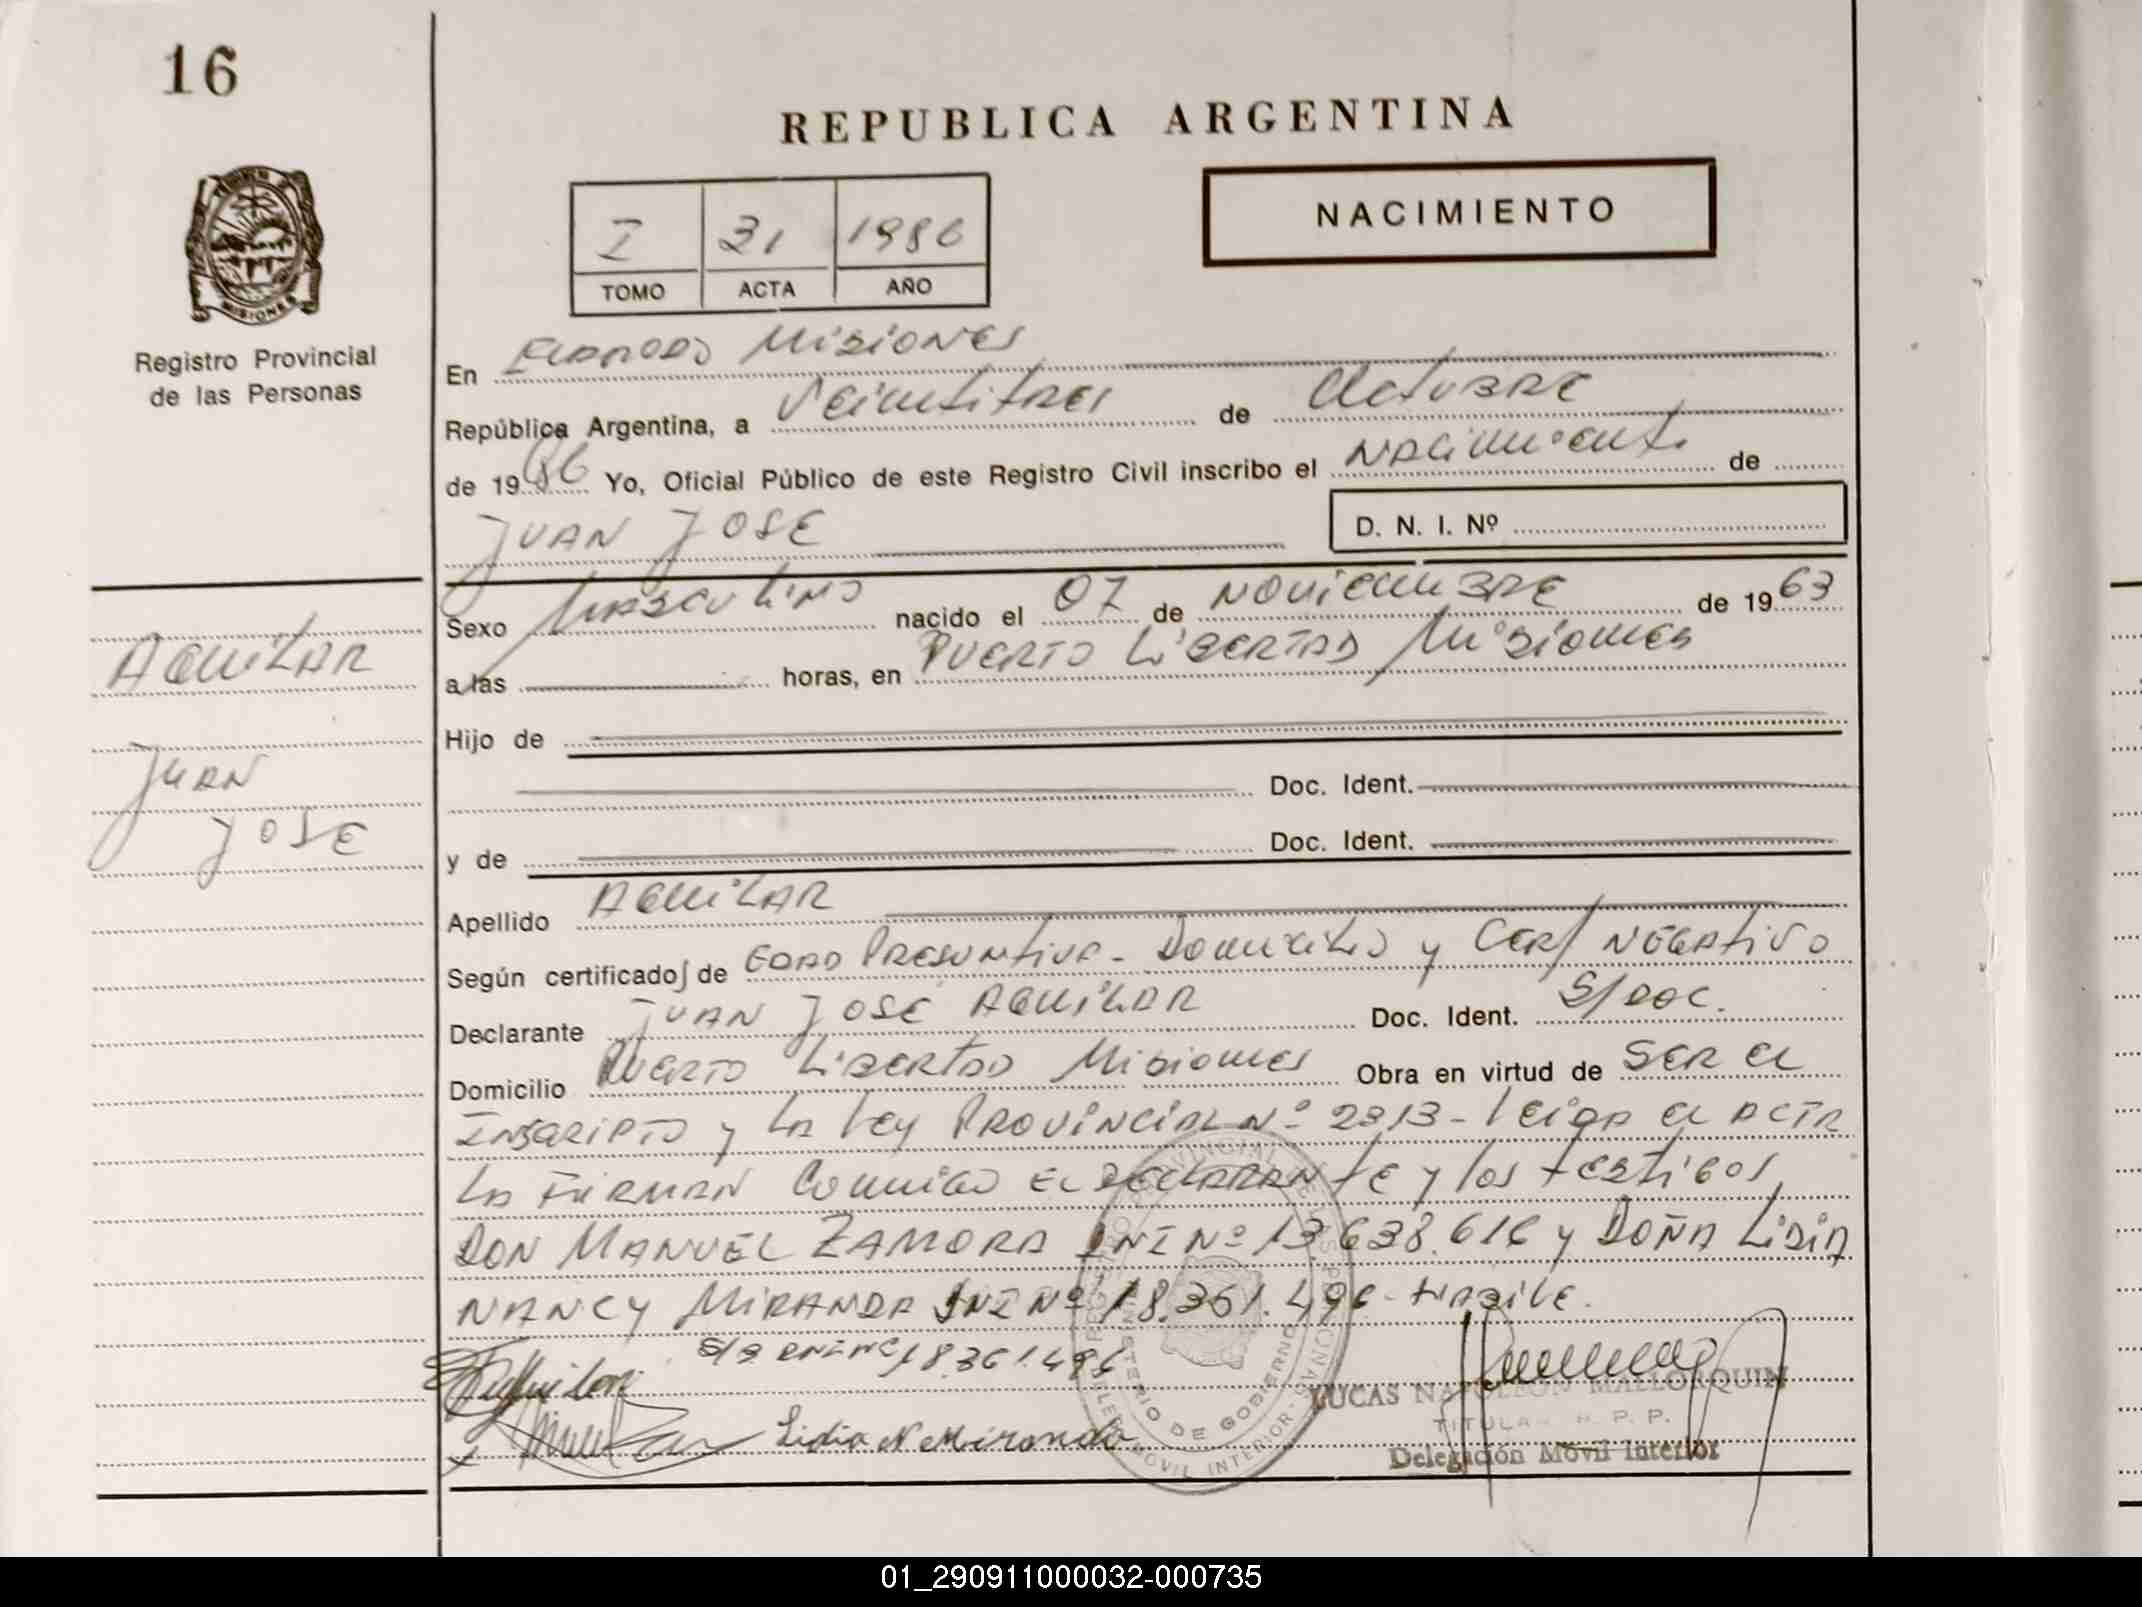 16
REPUBLICA ARGENTINA
NACIMIENTO
I 31 1986
TOMO ACTA AÑO
Registro Provincial
de las Personas
En ELDORADO MISIONES
República Argentina, a Veintitres de OCTUBRE
de 1986 Yo, Oficial Público de este Registro Civil inscribo el NACIMIENTO de
JUAN JOSE D. N. I. Nº
Sexo MASCULINO nacido el 07 de NOVIEMBRE de 1963
a las horas, en PUERTO LIBERTAD MISIONES
AGUILAR
JUAN
JOSE
Hijo de
Doc. Ident.
y de Doc. Ident.
Apellido AGUILAR
Según certificado/ de EDAD PRESUNTIVA - DOMICILIO y CERT NEGATIVO
Declarante JUAN JOSE AGUILAR Doc. Ident. S/DOC.
Domicilio PUERTO LIBERTAD MISIONES Obra en virtud de SER EL
INSCRIPTO y LA LEY PROVINCIAL Nº 2313 - LEIDA EL ACTA
LA FIRMAN CONMIGO EL DECLARANTE y LOS TESTIGOS
DON MANUEL ZAMORA DNI Nº 13.638.616 y DOÑA LIDIA
NANCY MIRANDA DNI Nº 18.361.496-
18.361.496
Lidia N Miranda
LUCAS NAPOLEON MALLORQUIN
TITULAR R. P. P.
Delegación Móvil Interior
MINISTERIO DE GOBIERNO
MOVIL INTERIOR
01_290911000032-000735